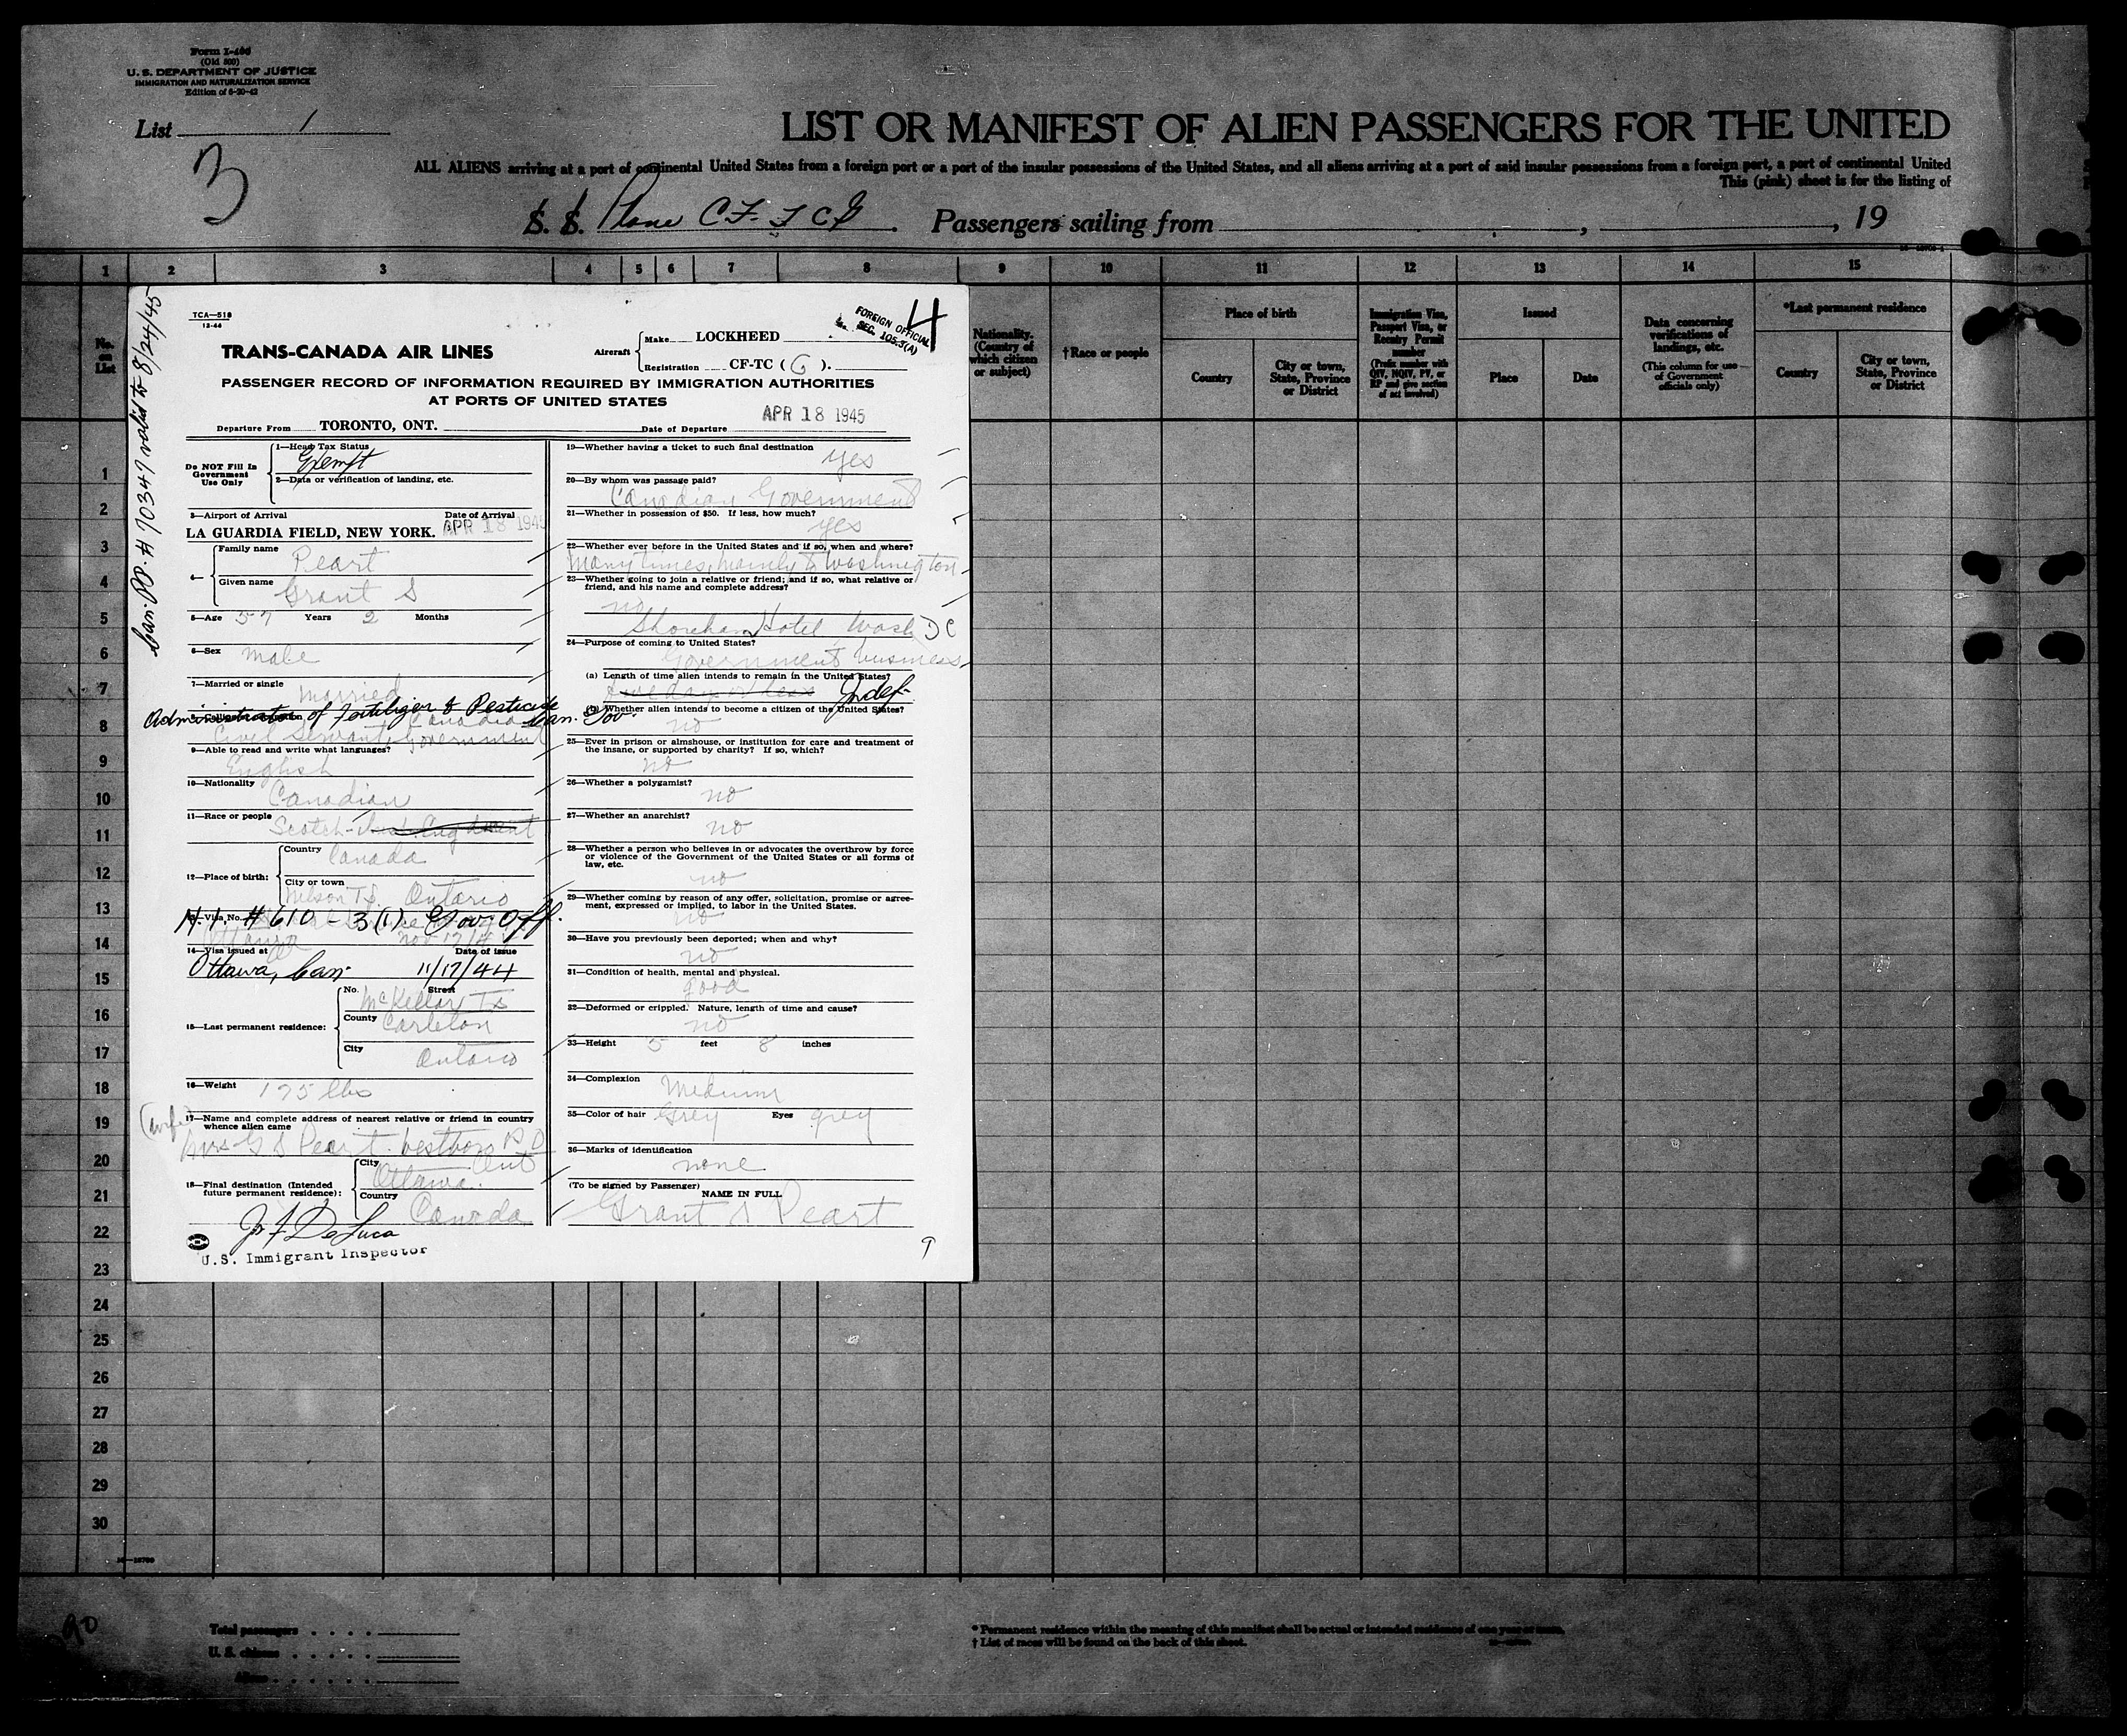 Form I-400
(Old 500)
U. S. DEPARTMENT OF JUSTICE
IMMIGRATION AND NATURALIZATION SERVICE
Edition of 6-30-42
List 1
3
LIST OR MANIFEST OF ALIEN PASSENGERS FOR THE UNITED
ALL ALIENS arriving at a port of continental United States from a foreign port or a port of the insular possessions of the United States, and all aliens arriving at a port of said insular possessions from a foreign port, a port of continental United
This (pink) sheet is for the listing of
S. S. Plane CF-TCG. Passengers sailing from , , 19
1 2 3 4 5 6 7 8 9 10 11 12 13 14 15
No. on List
Nationality. (Country of which citizen or subject)
†Race or people
Place of birth
Country
City or town, State, Province or District
Immigration Visa, Passport Visa, or Reentry Permit number
(Prefix number with QIV, NQIV, PV, or RP and give section of act involved)
Issued
Place
Date
Data concerning verifications of landings, etc.
(This column for use of Government officials only)
*Last permanent residence
Country
City or town, State, Province or District
Can. PP. # 70349 valid to 8/24/45
TCA—518
12-44
4
FOREIGN OFFICIAL
SEC. 105.3(A)
TRANS-CANADA AIR LINES
Aircraft
Make LOCKHEED
Registration CF-TC ( G ).
PASSENGER RECORD OF INFORMATION REQUIRED BY IMMIGRATION AUTHORITIES
AT PORTS OF UNITED STATES
Departure From TORONTO, ONT. Date of Departure APR 18 1945
Do NOT Fill In
Government
Use Only
1—Head Tax Status
Exempt
2—Data or verification of landing, etc.
3—Airport of Arrival Date of Arrival
LA GUARDIA FIELD, NEW YORK. APR 18 1945
4—
Family name
Peart
Given name
Grant S
5—Age 57 Years 2 Months
6—Sex male
7—Married or single married
Administrator of Fertilizer & Pesticide Can. Gov.
Canadian
Civil Servant Government
9—Able to read and write what languages?
English
10—Nationality
Canadian
11—Race or people
Scotch
12—Place of birth:
Country
Canada
City or town
Nelson Tp. Ontario
13—Visa No.
N.I. # 610 - 3(1) Gov. Off.
14—Visa issued at Date of issue
Ottawa, Can. 11/17/44
15—Last permanent residence:
No. Street
McKellar Ts
County
Carleton
City
Ontario
16—Weight 175 lbs
(wife)
17—Name and complete address of nearest relative or friend in country
whence alien came
Mrs G S Peart Westboro P O
Ont
18—Final destination (Intended
future permanent residence):
City
Ottawa
Country
Canada
U.S. Immigrant Inspector
19—Whether having a ticket to such final destination
yes
20—By whom was passage paid?
Canadian Government
21—Whether in possession of $50. If less, how much?
yes
22—Whether ever before in the United States and if so, when and where?
Many times, mainly to Washington
23—Whether going to join a relative or friend; and if so, what relative or
friend, and his name and complete address?
no
Shoreham Hotel Wash DC
24—Purpose of coming to United States?
Government business
(a) Length of time alien intends to remain in the United States?
Indef-
(b) Whether alien intends to become a citizen of the United States?
no
25—Ever in prison or almshouse, or institution for care and treatment of
the insane, or supported by charity? If so, which?
no
26—Whether a polygamist?
no
27—Whether an anarchist?
no
28—Whether a person who believes in or advocates the overthrow by force
or violence of the Government of the United States or all forms of
law, etc.
no
29—Whether coming by reason of any offer, solicitation, promise or agree-
ment, expressed or implied, to labor in the United States.
no
30—Have you previously been deported; when and why?
no
31—Condition of health, mental and physical.
good
32—Deformed or crippled. Nature, length of time and cause?
no
33—Height 5 feet 8 inches
34—Complexion
Medium
35—Color of hair Grey Eyes grey
36—Marks of identification
none
(To be signed by Passenger) NAME IN FULL
Grant S Peart
9
1
2
3
4
5
6
7
8
9
10
11
12
13
14
15
16
17
18
19
20
21
22
23
24
25
26
27
28
29
30
90
Total passengers
U. S. citizens
Aliens
* Permanent residence within the meaning of this manifest shall be actual or intended residence of one year or more.
† List of races will be found on the back of this sheet.